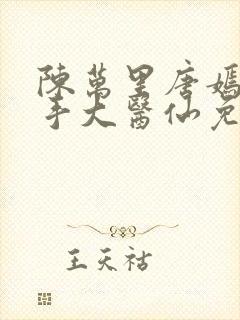 陳萬里唐嫣
手大醫仙免
王天祜